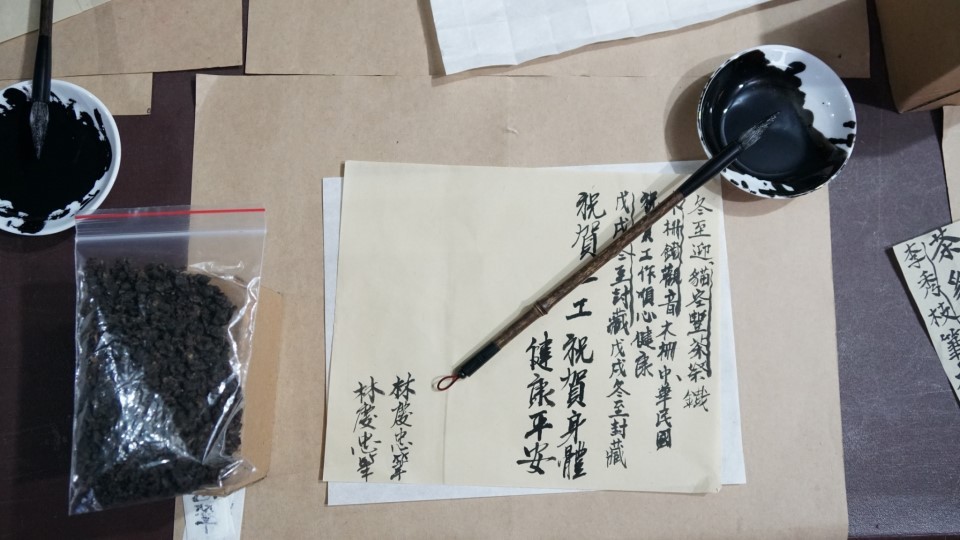 冬至迎貓空豐茶業鐵
木柵鐵觀音木柵中華民國
祝賀工作順心健康
戊戌冬至封藏戊戌冬至封藏
祝賀 工祝賀身體
健康平安
林慶忠筆
林慶忠筆
茶
李秀枝筆
平